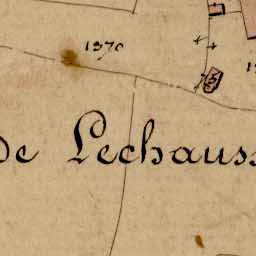 1370
de Lechauss